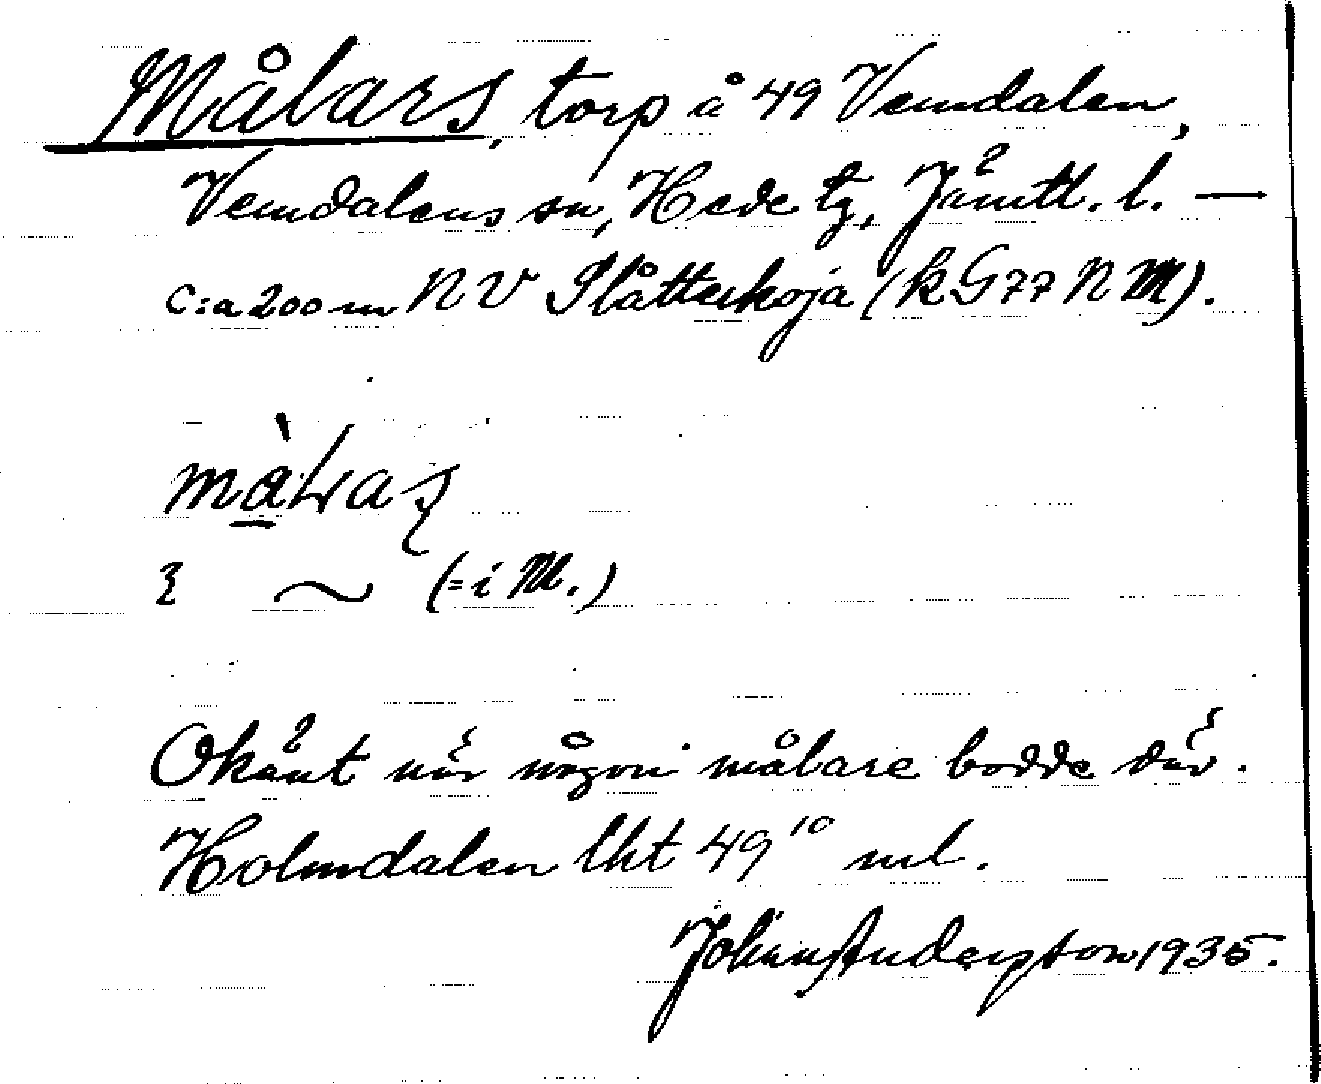 Målars, torp å 49 Vemdalen,
Vemdalens sn, Hede tg, Jämtl. l. —
c:a 200 m NV Slåtterkoja (k G77 N M).
màLaʂ
ξ ~ (= i M.)
Okänt när någon målare bodde där.
Holmdalen lht 49¹⁰ ml.
Johan Anderson 1935.